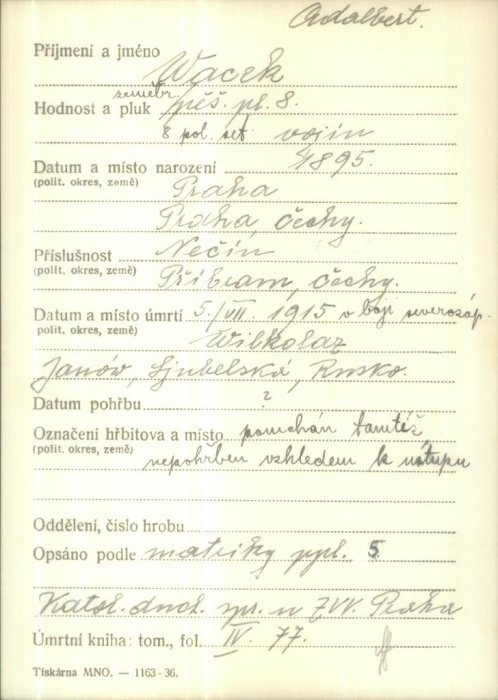 Adalbert.
Příjmení a jméno
Wacek
zeměbr.
Hodnost a pluk pěš. pl. 8.
8 pol. set. vojín
Datum a místo narození 1895.
(polit. okres, země) Praha
Praha, Čechy.
Příslušnost Nečín
(polit. okres, země) Příbram, Čechy.
Datum a místo úmrtí 5./VII. 1915 v boji severozáp.
polit. okres, země) Wilkolaz
Janów, Ljubelská, Rusko.
Datum pohřbu ?
Označení hřbitova a místo ponechán tamtéž
(polit. okres, země) nepohřben vzhledem k ústupu
Oddělení, číslo hrobu
Opsáno podle matriky ppl. 5
Katol. duch. spr. u ZVV. Praha
Úmrtní kniha: tom., fol. IV. 77.
Tiskárna MNO. — 1163-36.